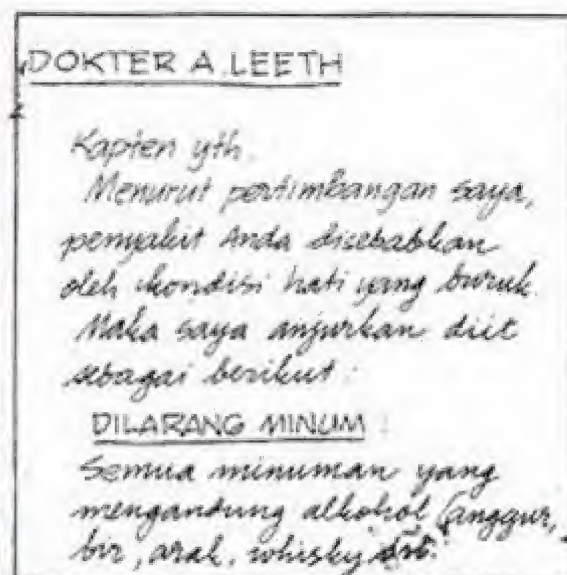 DOKTER A. LEETH
Kapten yth.
Menurut pertimbangan saya,
penyakit Anda disebabkan
oleh kondisi hati yang buruk.
Maka saya anjurkan diit
sebagai berikut:
DILARANG MINUM:
Semua minuman yang
mengandung alkohol (anggur,
bir, arak, whisky dst.